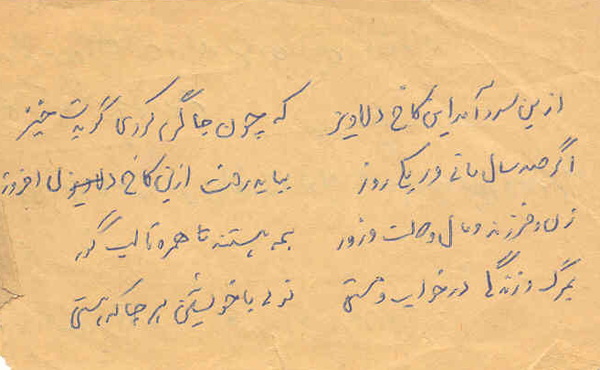 ازین سرد آمد این کاخ دلاویز که چون جا گرم کردی گویدت خیز
اگر صد سال مانی ور یکی روز بباید رفت ازین کاخ دل افروز
زن و فرزند و مال و دولت و زور همه هستند همره تا لب گور
بمرگ و زندگی در خواب و مستی توئی با خویشتن هر جا که هستی